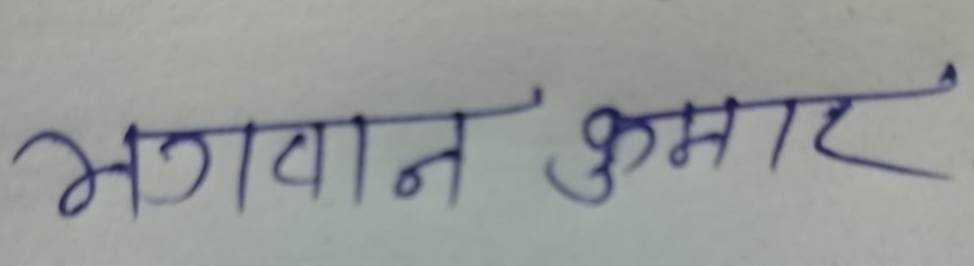 भगवान कुमार